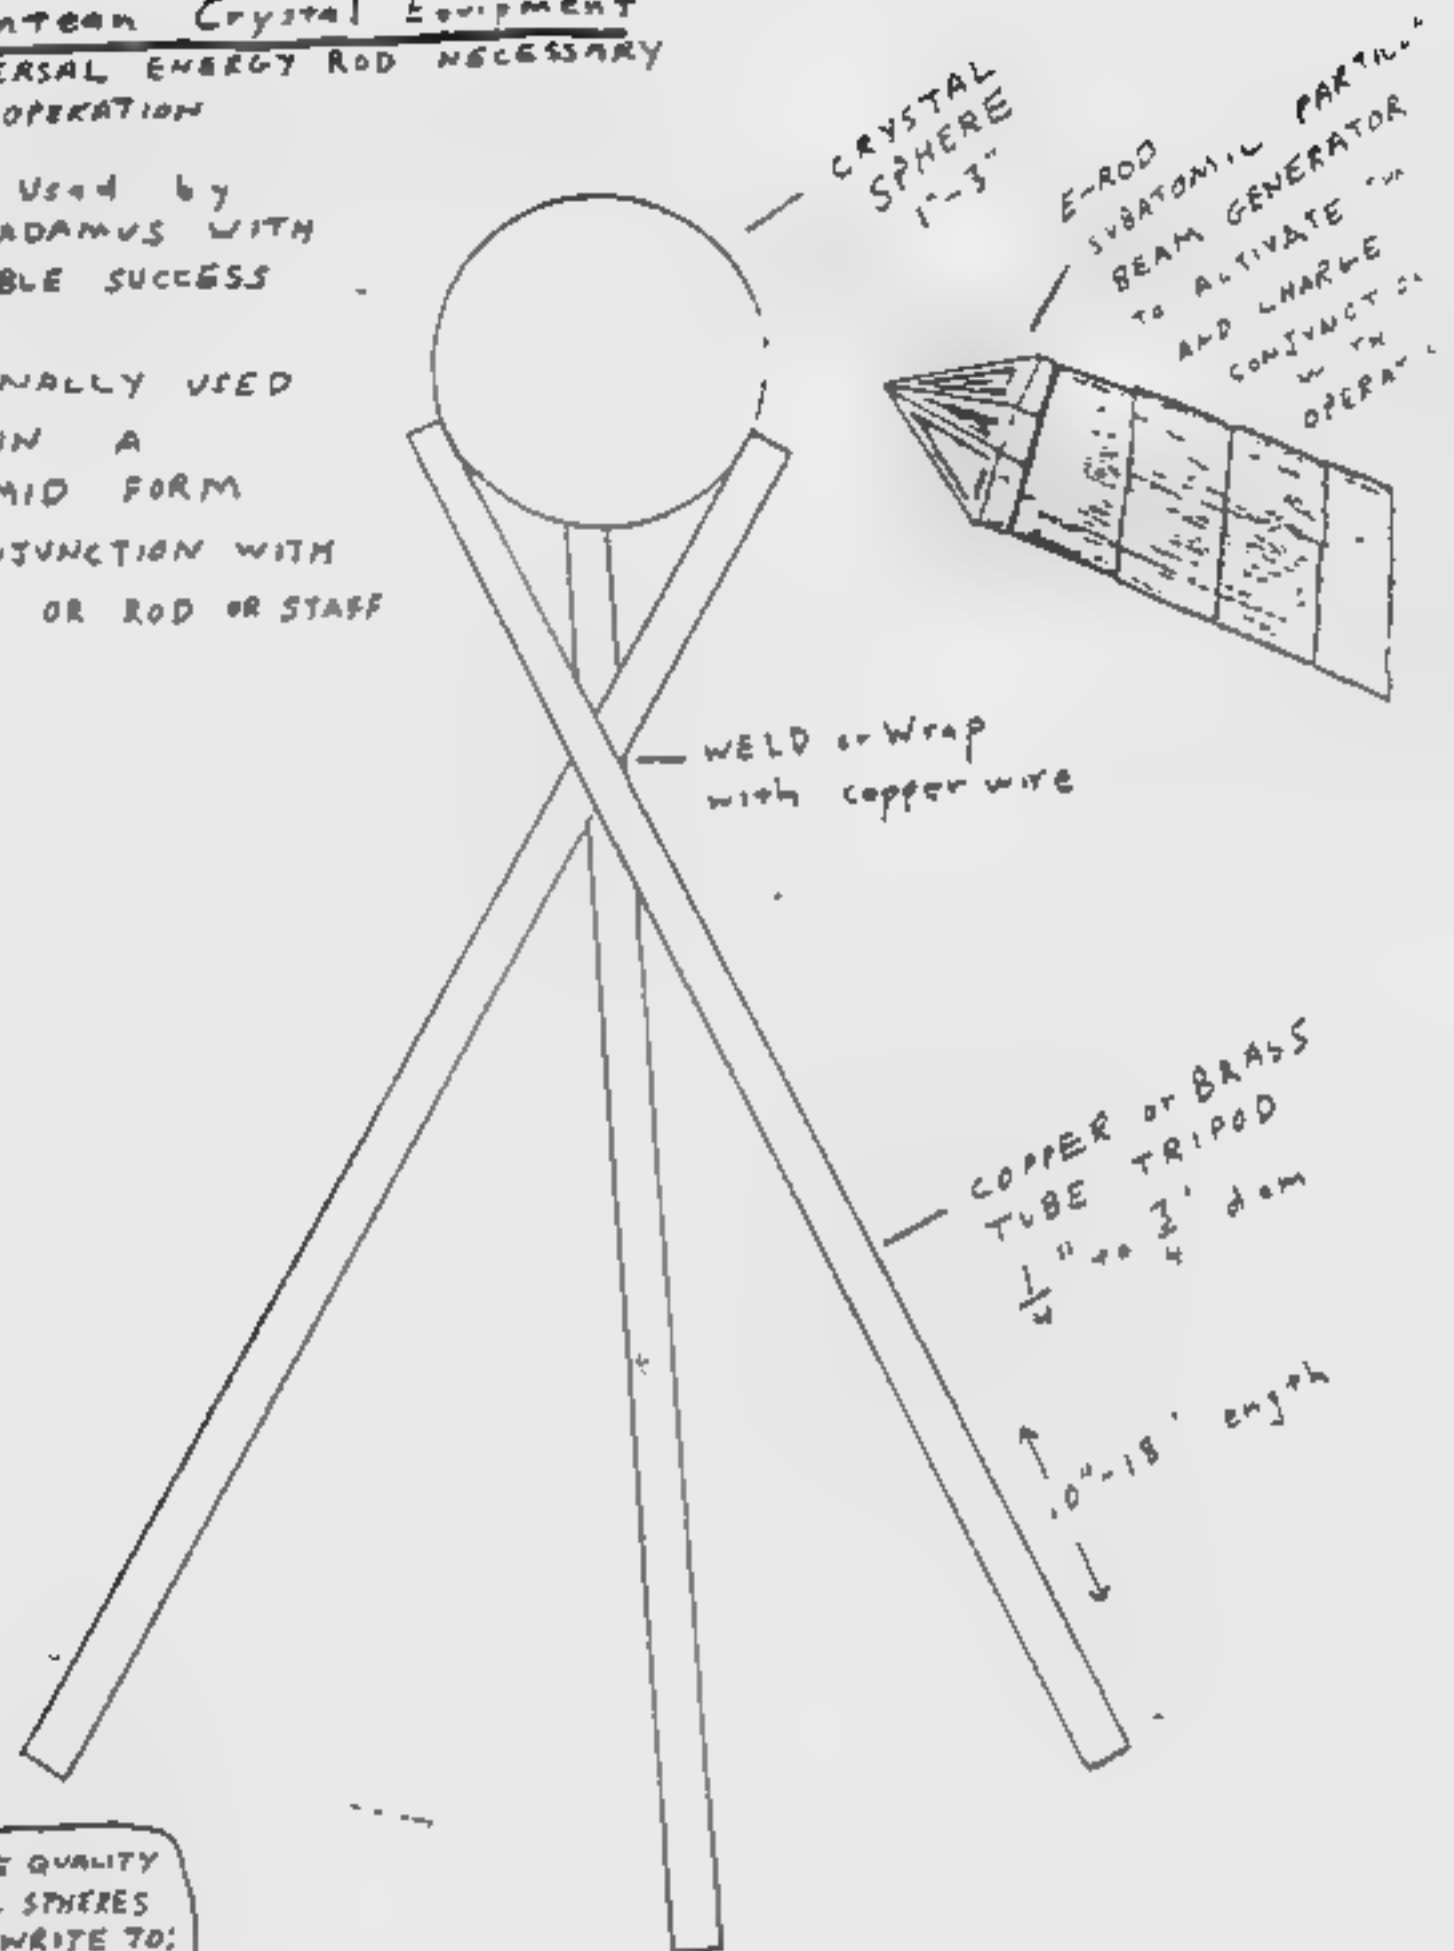 ntean Crystal Equipment
ERSAL ENERGY ROD NECESSARY
OPERATION
Used by
ADAMUS WITH
BLE SUCCESS
NALLY USED
IN A
MID FORM
JUNCTION WITH
OR ROD OR STAFF
CRYSTAL
SPHERE
1"-3"
E-ROD
SUBATOMIC
BEAM GENERATOR
TO ACTIVATE
AND CHARGE
WELD or Wrap
with copper wire
COPPER or BRASS
TUBE TRIPOD
1/4" to 3/4'
0"-18' ength
QUALITY
SPHERES
WRITE TO: